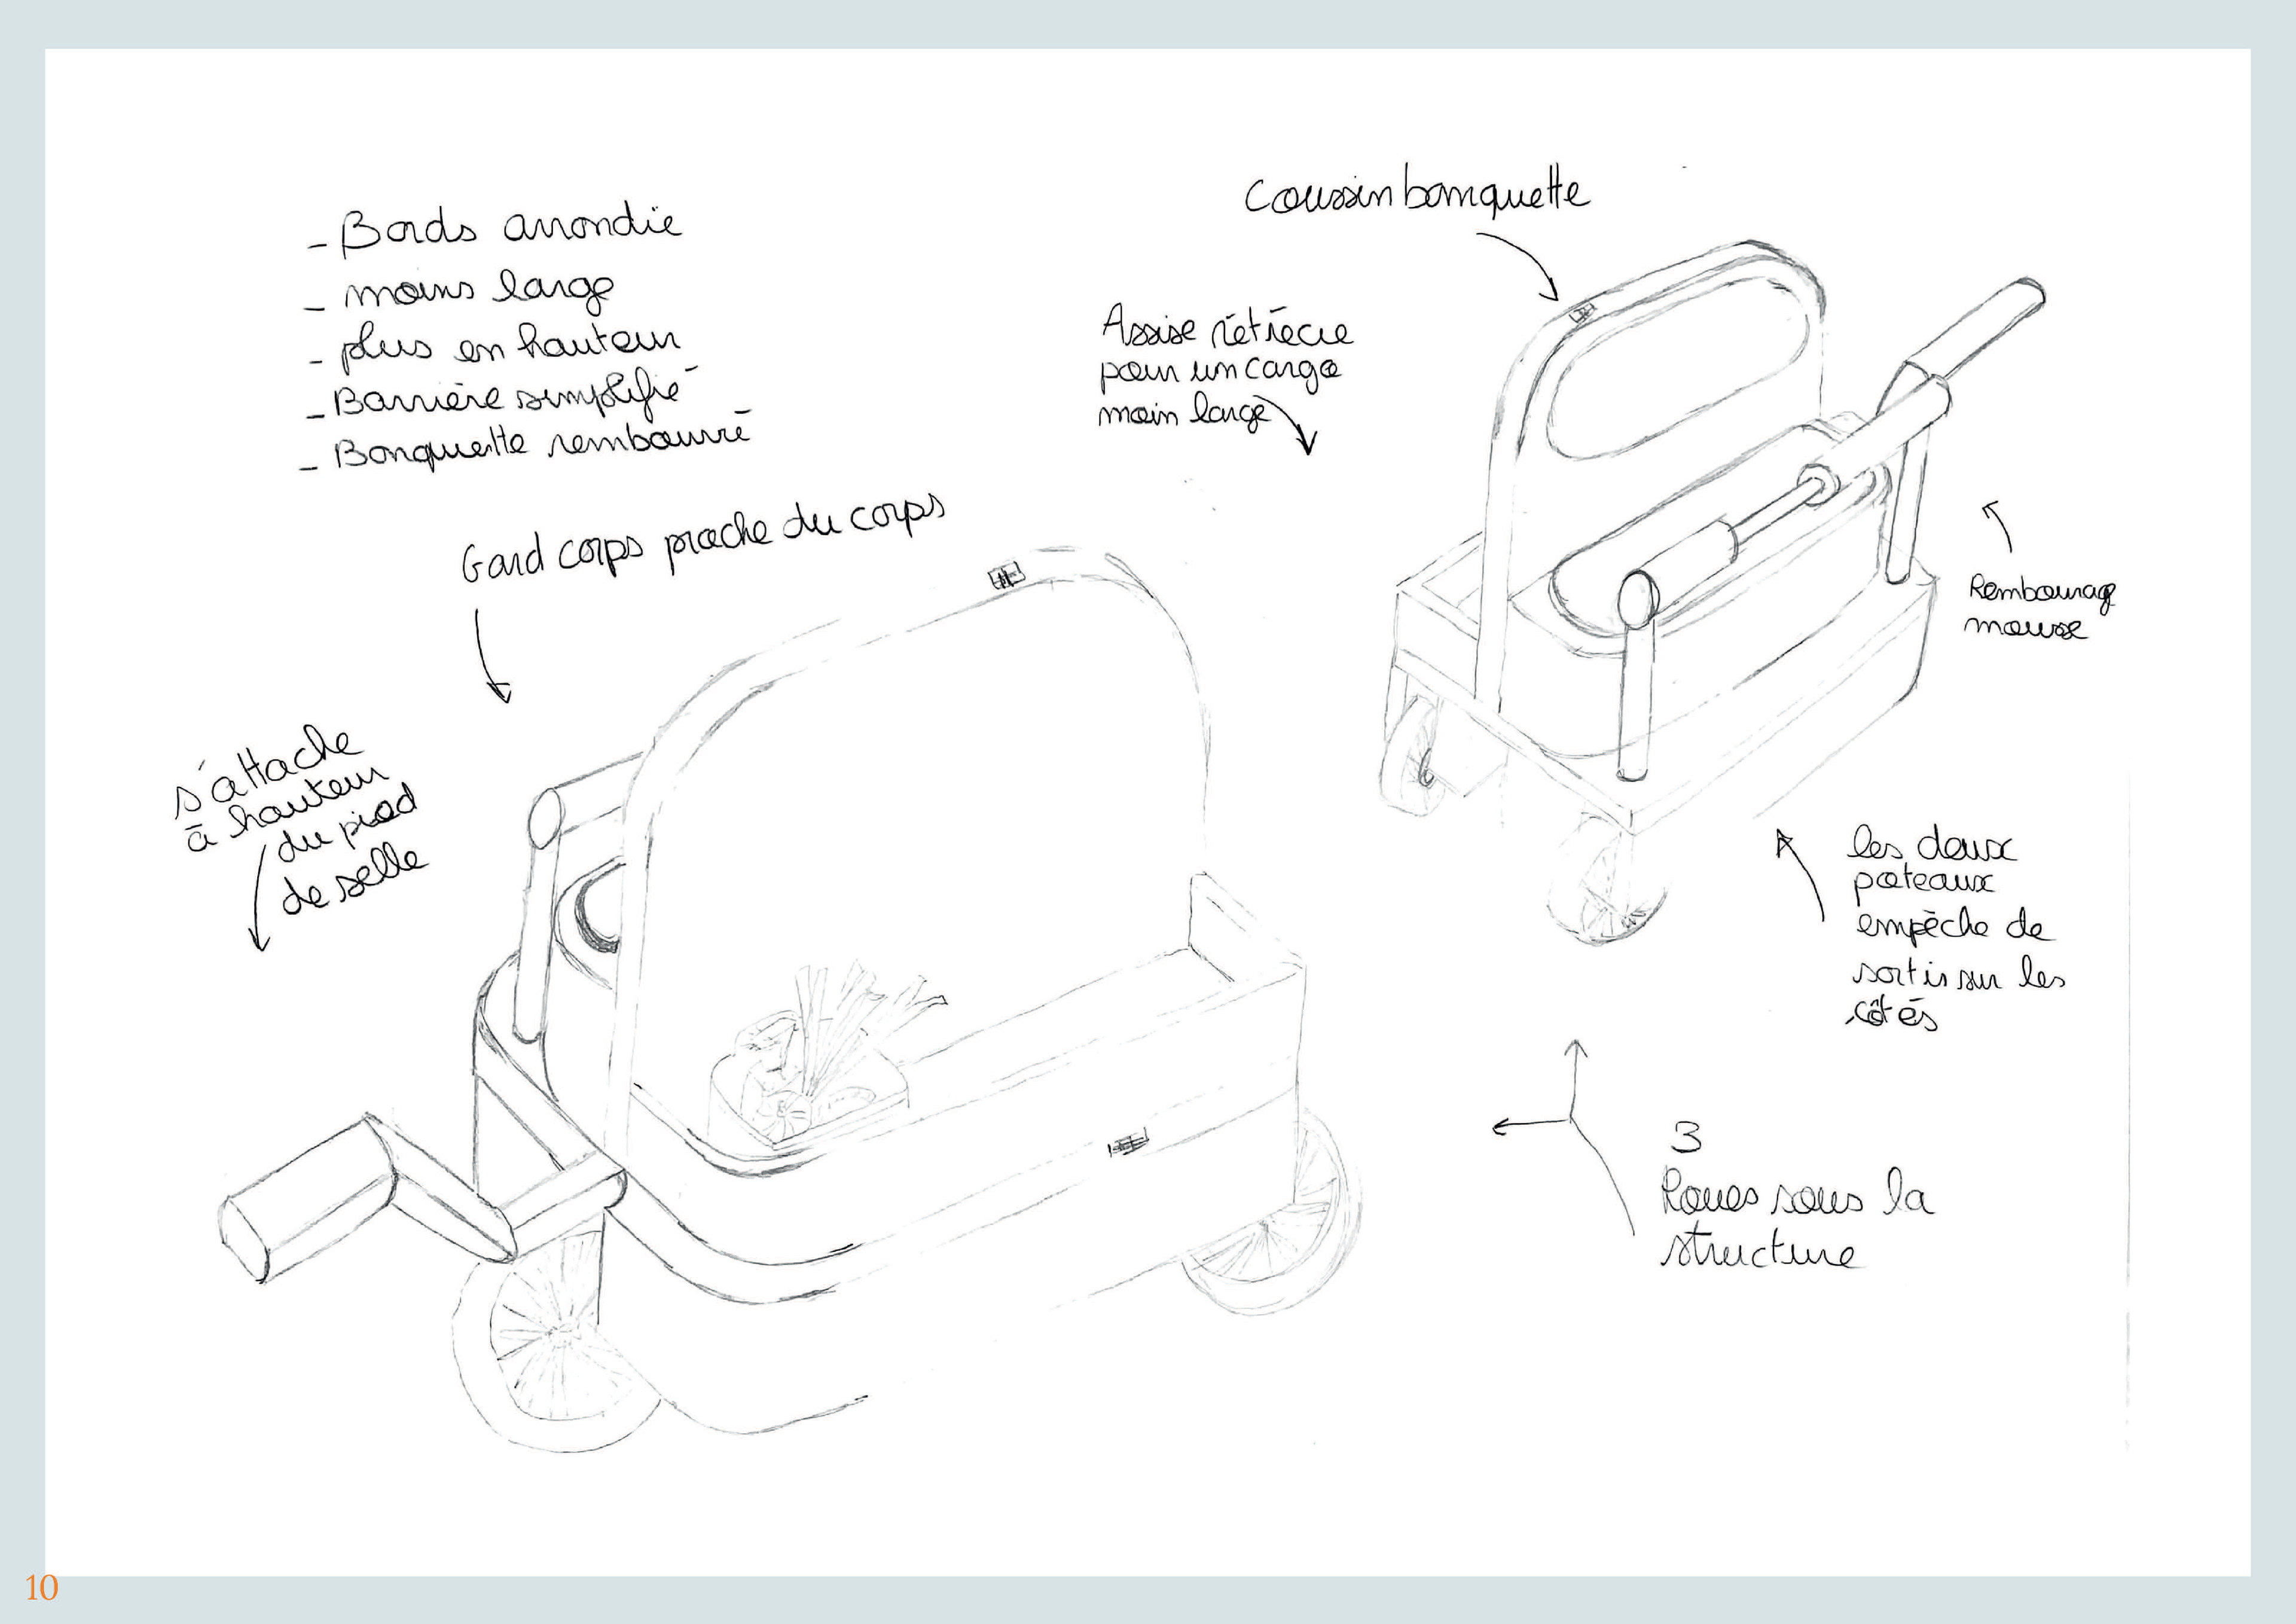 - Bords arrondie
- moins large
- plus en hauteur
- Barrière simplifié
- Bonquette rembourré
Coussin banquette
Assise rétrécie
pour un cargo
moin large
Gard corps proche du corps
Rembourrage
mousse
s'attache
à hauteur
du pied
de selle
les deux
poteaux
empêche de
sortir sur les
côtés
3
Roues sous la
structure
10